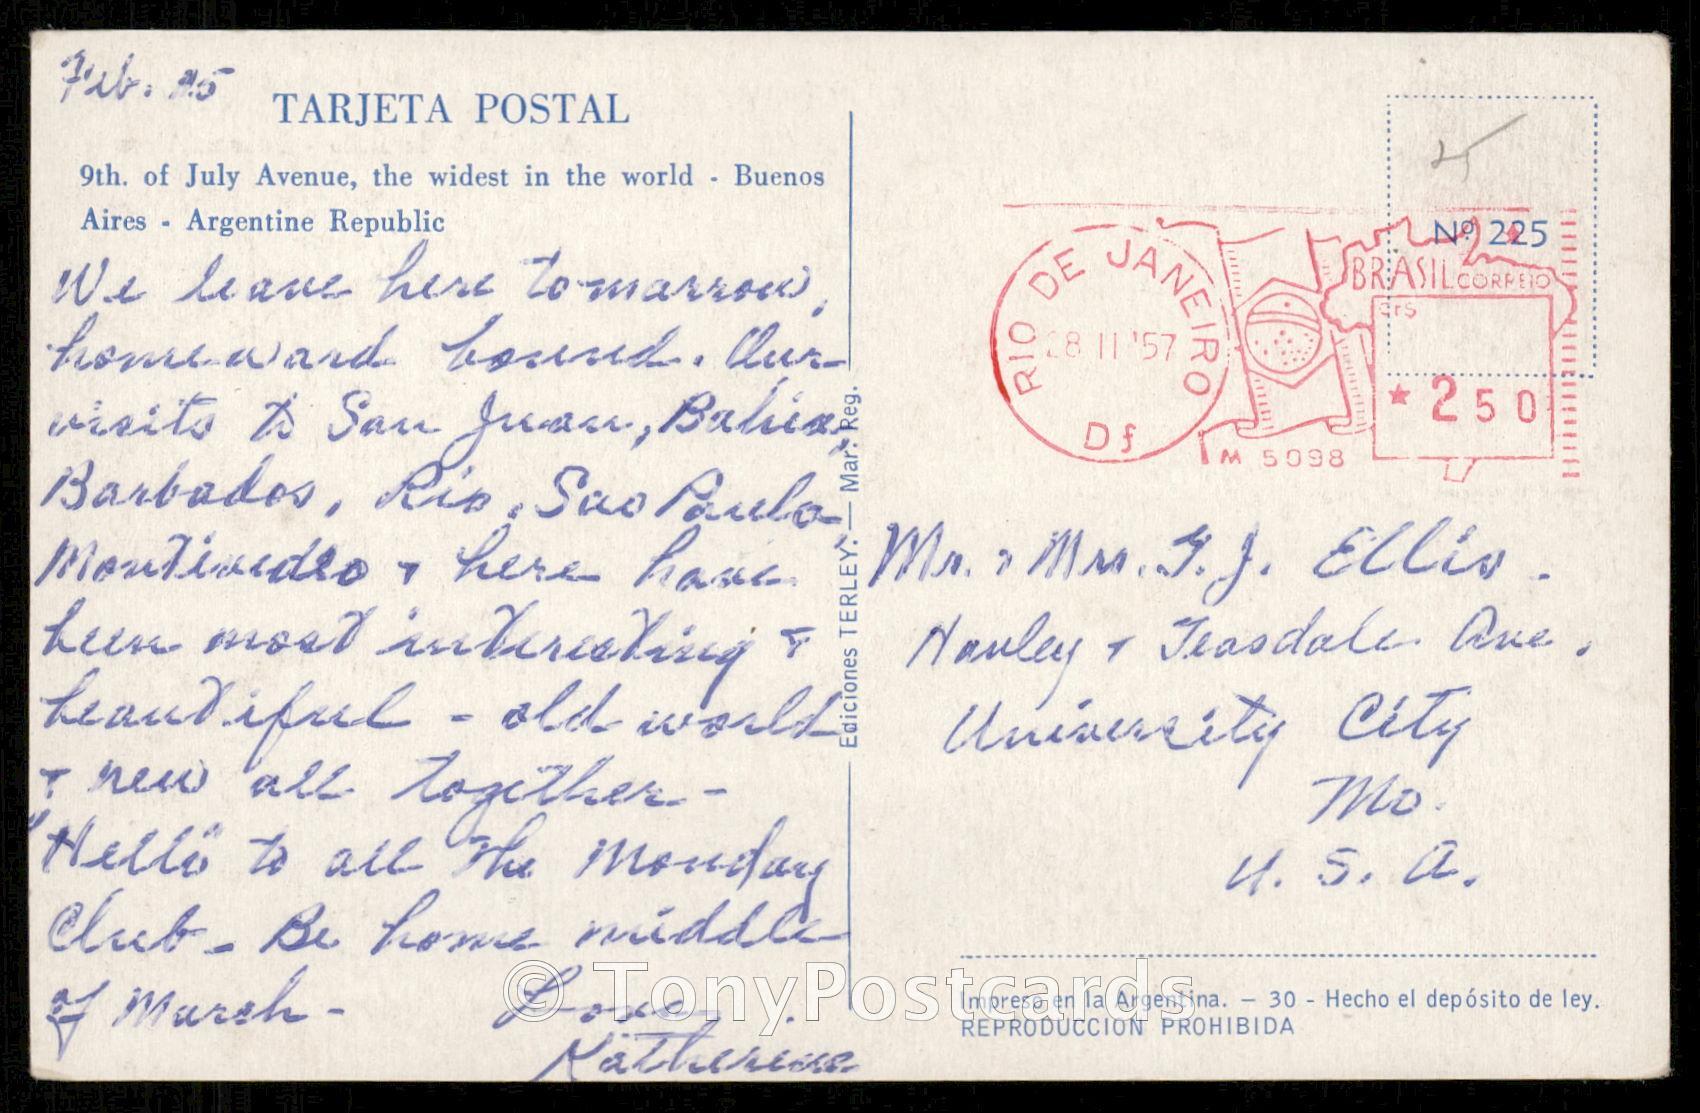 Feb. 25
TARJETA POSTAL
9th. of July Avenue, the widest in the world - Buenos
Aires - Argentine Republic
We leave here tomarrow,
homeward bound. Our
visits to San Juan, Bahia,
Barbados, Rio, Sao Paulo,
Montivedeo + here have
been most interesting +
beautiful - old world
+ new all together -
"Hello" to all the Monday
Club - Be home middle
of March - Love.
Katherine
Ediciones TERLEY. — Mar. Reg.
25
Nº 225
RIO DE JANEIRO
28 II '57
Df
BRASIL CORREIO
CrS
* 250
M 5098
Mr. + Mrs. G. J. Ellis.
Hanley + Teasdale Ave.
University City
Mo.
U. S. A.
Impreso en la Argentina. — 30 - Hecho el depósito de ley.
REPRODUCCION PROHIBIDA
© TonyPostcards